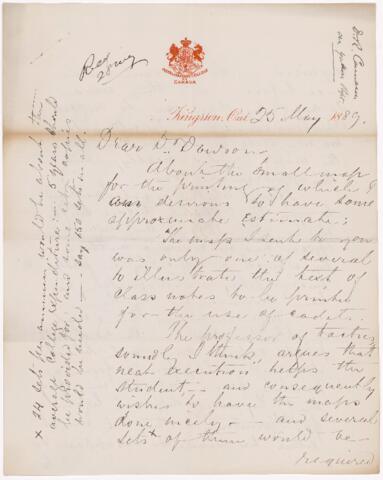 Recd
28 May
D.R. Cameron
ROYAL MILITARY COLLEGE
OF
CANADA
Kingston, Ont 25 May 1889.
Dear Dr Dawson
About the small map
for the printing of which I
am desirous to have some
approximate estimate:
The map I sent to you
was only one of several
to illustrate the text of
class notes to be printed
for the use of cadets.
The professor of tactics
soundly I think, argues that
neat execution helps the
student - and consequently
wishes to have the maps
done nicely - and several
sets x of them would be
required
x 24 sets per annum would be about the
average College expenditure - 5 years should
be provided for and some extra copies
would be needed - say 150 sets in all.